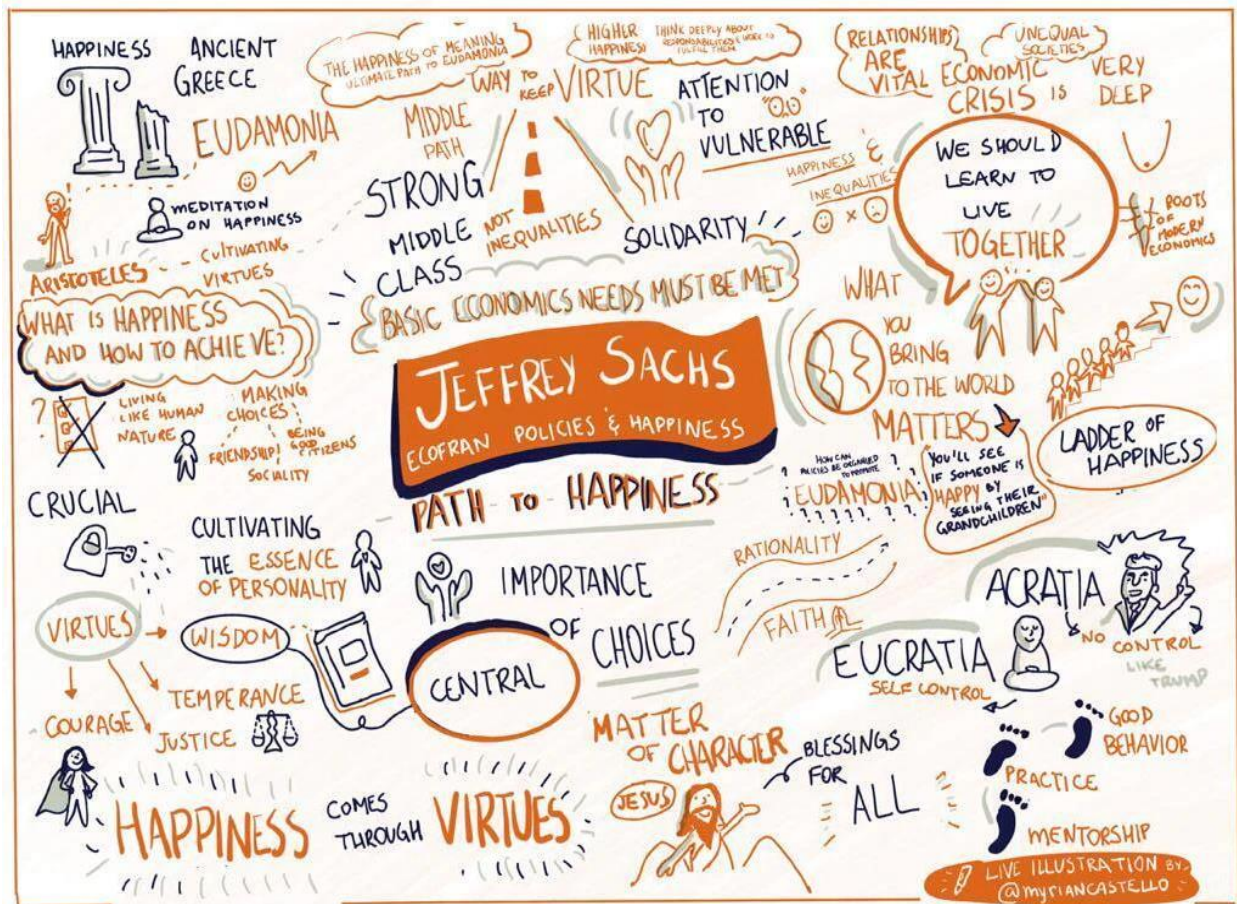 HAPPINESS
ANCIENT
GREECE
EUDAMONIA
MEDITATION
ON HAPPINESS
ARISTOTELES
CULTIVATING
VIRTUES
WHAT IS HAPPINESS
AND HOW TO ACHIEVE?
?
LIVING
LIKE HUMAN
NATURE
MAKING
CHOICES
FRIENDSHIP
BEING
GOOD
CITIZENS
SOCIALITY
THE HAPPINESS OF MEANING
ULTIMATE PATH TO EUDAMONIA
HIGHER
HAPPINESS
THINK DEEPLY ABOUT
RESPONSABILITIES & WORK TO
FULFILL THEM
WAY TO
KEEP VIRTUE
MIDDLE
PATH
STRONG
MIDDLE
CLASS
NOT
INEQUALITIES
ATTENTION
TO
VULNERABLE
SOLIDARITY
BASIC ECONOMICS NEEDS MUST BE MET
HAPPINESS &
INEQUALITIES
RELATIONSHIPS
ARE
VITAL
UNEQUAL
SOCIETIES
ECONOMIC
CRISIS IS
VERY
DEEP
WE SHOULD
LEARN TO
LIVE
TOGETHER
ROOTS
OF
MODERN
ECONOMICS
JEFFREY SACHS
ECOFRAN POLICIES & HAPPINESS
PATH TO HAPPINESS
WHAT
YOU
BRING
TO THE WORLD
MATTERS
HOW CAN
POLICIES BE ORGANIZED
TO PROMOTE
EUDAMONIA
? ? ? ? ? ?
"YOU'LL SEE
IF SOMEONE IS
HAPPY BY
SEEING THEIR
GRANDCHILDREN"
LADDER OF
HAPPINESS
CRUCIAL
CULTIVATING
THE ESSENCE
OF PERSONALITY
VIRTUES
WISDOM
TEMPERANCE
COURAGE
JUSTICE
IMPORTANCE
OF
CHOICES
CENTRAL
RATIONALITY
FAITH
ACRATIA
NO
CONTROL
LIKE
TRUMP
EUCRATIA
SELF CONTROL
GOOD
BEHAVIOR
PRACTICE
MENTORSHIP
MATTER
OF CHARACTER
JESUS
BLESSINGS
FOR
ALL
HAPPINESS
COMES
THROUGH
VIRTUES
LIVE ILLUSTRATION BY
@myRIANCASTELLO